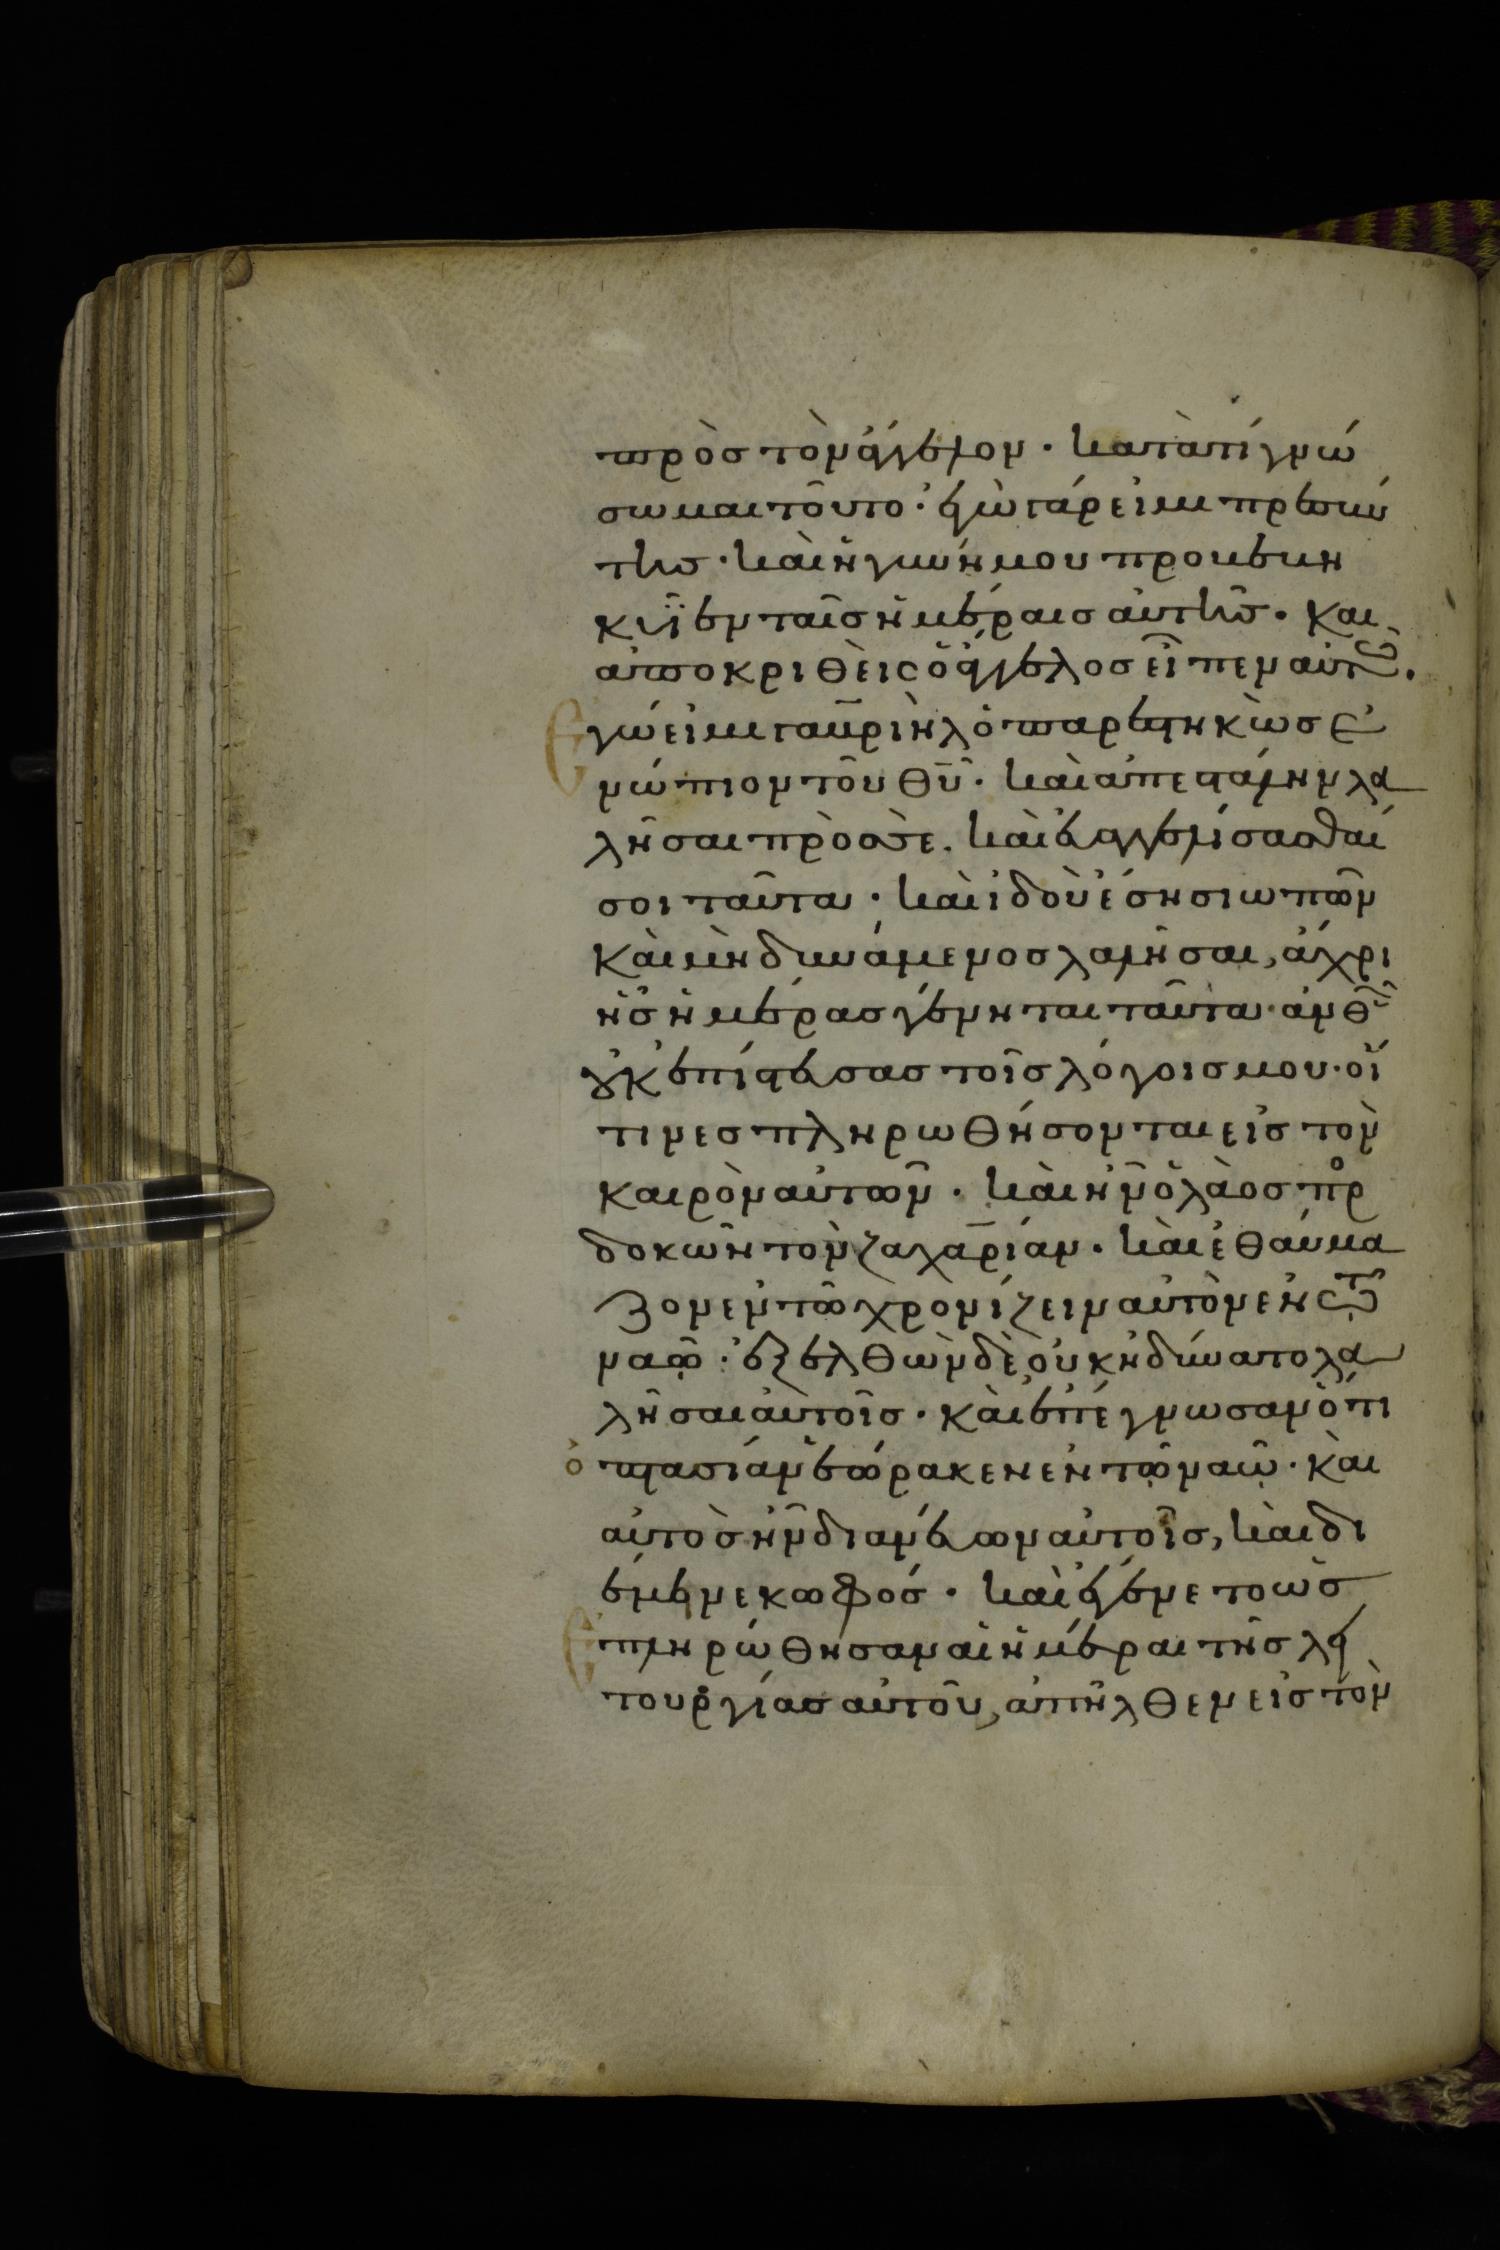 πρὸς τὸν ἄγγελον · κατὰ τί γνώ
σωμαι τοῦτο · ἐγὼ γάρ εἰμι πρεσβύ
της · καὶ ἡ γυνή μου προβεβη
κυῖα ἐν ταῖς ἡμέραις αὐτῆς · καὶ
ἀποκριθεὶς ὁ ἄγγελος εἶπεν αὐτῶ ·
Ἐγώ εἰμι γαβριὴλ ὁ παρεστηκὼς ἐ
νώπιον τοῦ θῦ · καὶ ἀπεστάλην λα
λῆσαι πρὸς σὲ . καὶ εὐαγγελίσασθαί
σοι ταῦτα · καὶ ἰδοὺ ἔση σιωπῶν
καὶ μὴ δυνάμενος λαλῆσαι, ἄχρι
ἧς ἡμέρας γένηται ταῦτα · ἀνθ ὧν
οὐκ ἐπίστευσας τοῖς λόγοις μου · οἵ
τινες πληρωθήσονται εἰς τὸν
καιρὸν αὐτῶν · καὶ ἦν ὁ λαὸς προσ
δοκῶν τὸν ζαχαρίαν · καὶ ἐθαύμα
ζον ἐν τῶ χρονίζειν αὐτὸν ἐν τῶ
ναῶ · ἐξελθὼν δὲ οὐκ ἠδύνατο λα
λῆσαι αὐτοῖς · καὶ ἐπέγνωσαν ὅτι
ὀπτασίαν ἑώρακεν ἐν τῷ ναῷ · καὶ
αὐτὸς ἦν διανεύων αὐτοῖς, καὶ δι
έμενε κωφός · καὶ ἐγένετο ὡς
ἐπλήρώθησαν αἱ ἡμέραι τῆς λει
τουργίας αὐτοῦ, ἀπῆλθεν εἰς τὸν